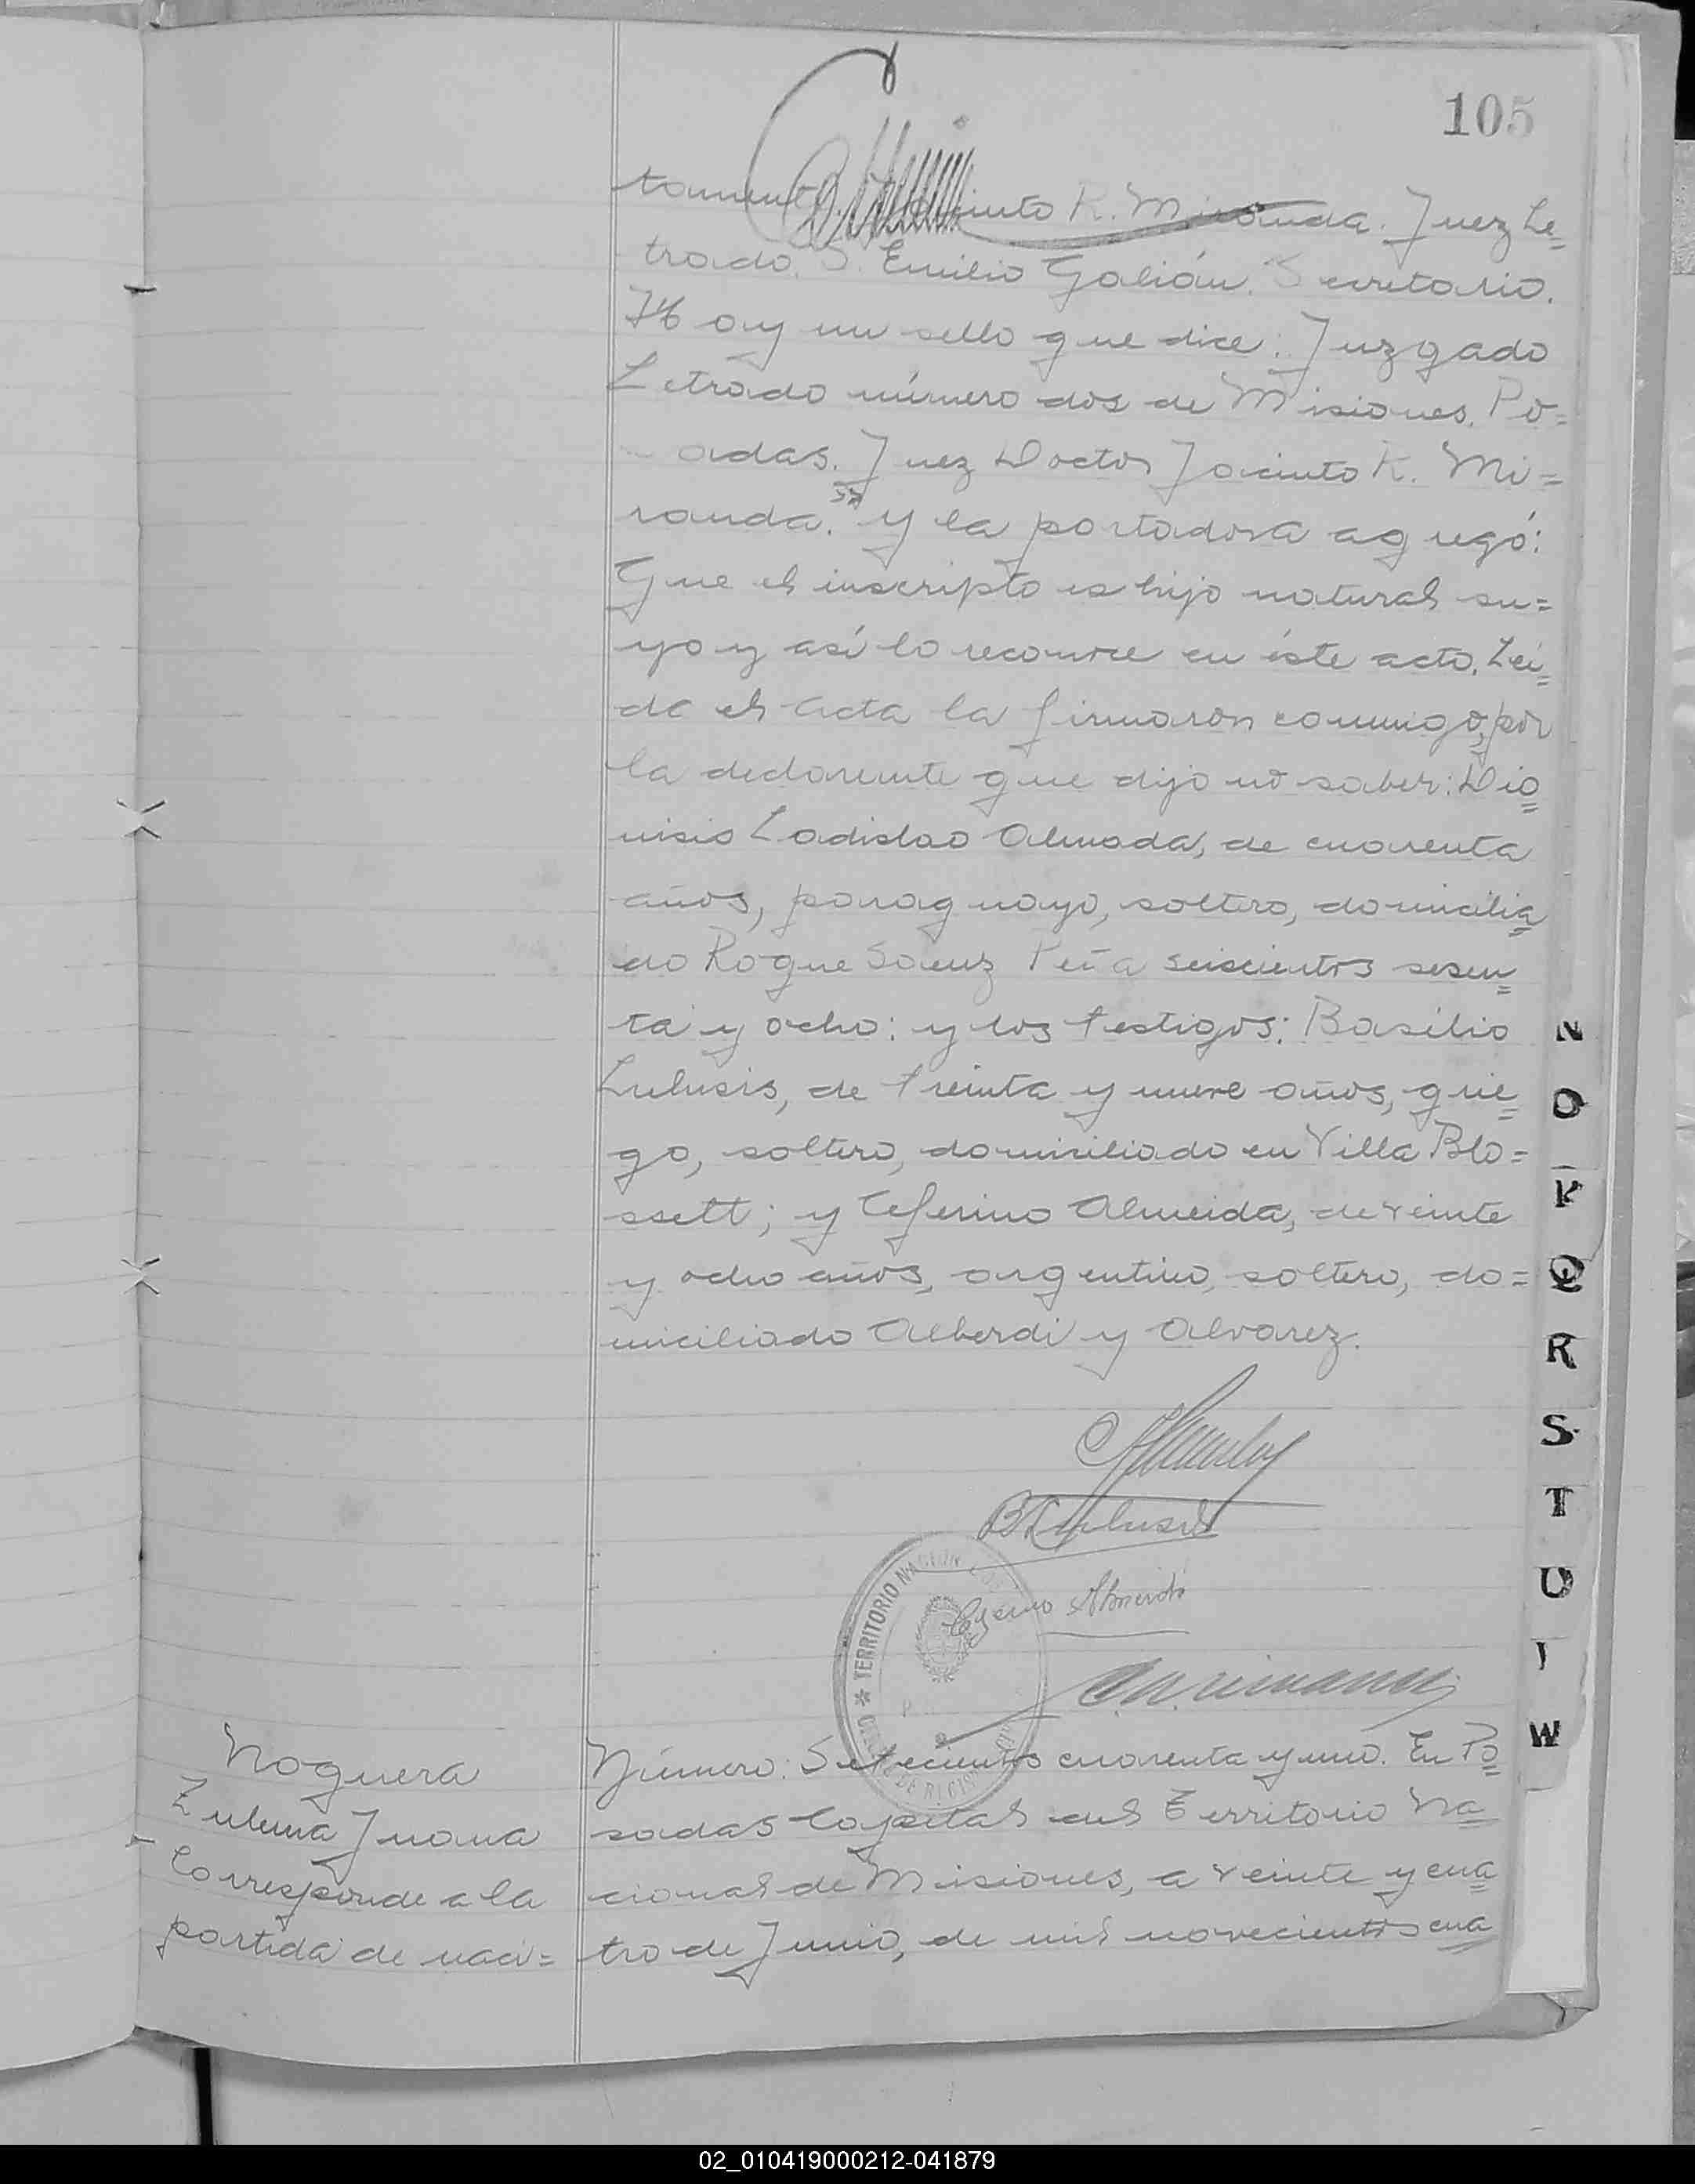 105
tamente. Jacinto R. Miranda. Juez Le=
trado. S. Emilio Galián. Secretario.
Hay un sello que dice: Juzgado
Letrado número dos de Misiones. Po=
adas. Juez Doctor Jacinto R. Mi=
randa." y la portadora agregó:
Que el inscripto es hijo natural su=
yo y así lo reconoce en éste acto. Lei=
da el acta la firmaron conmigo, por
la declarante que dijo no saber: Dio=
nisio Ladislao Almada, de cuarenta
años, paraguayo, soltero, domicilia=
do Roque Saenz Peña seiscientos sesen=
ta y ocho: y los testigos: Basilio
Lulusis, de treinta y nueve años, grie=
go, soltero, domiciliado en Villa Blo=
ssett; y Ceferino Almeida, de veinte
y ocho años, argentino, soltero, do=
miciliado Alberdi y Alvarez.
B Lulusis
Ceferino Almeida
TERRITORIO NACION
Noguera
Zulema Juana
Corresponde a la
partida de naci=
Número: Setecientos cuarenta y uno. En Po=
sadas Capital del Territorio Na=
cional de Misiones, a veinte y cua=
tro de Junio, de mil novecientos cua=
N
O
P
Q
R
S
T
U
W
02_010419000212-041879